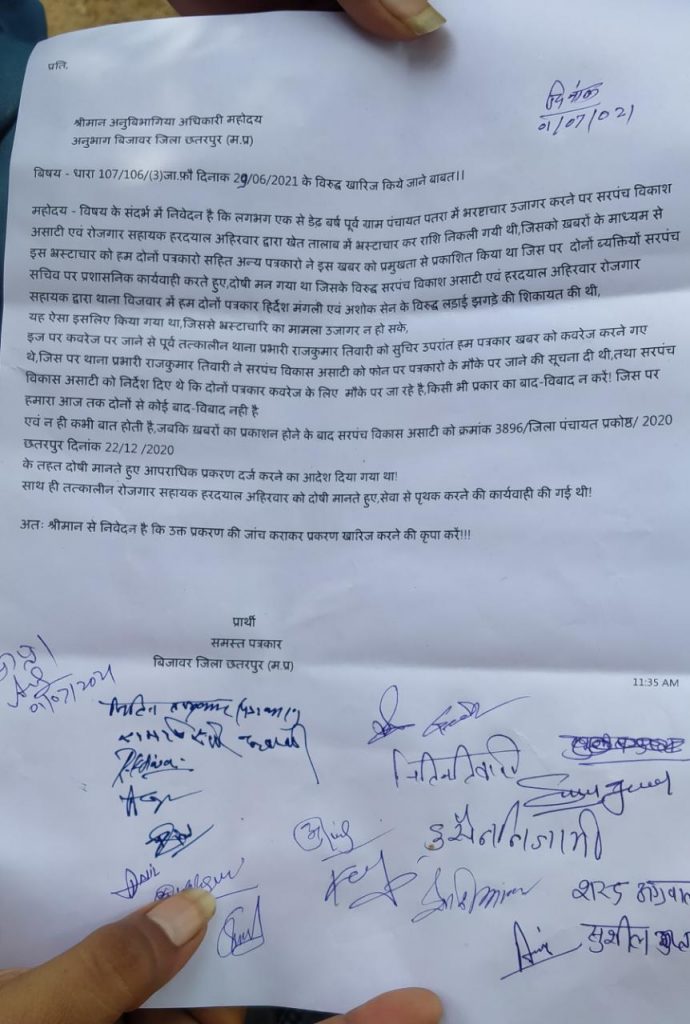 प्रति,
दिनांक
01/07/021
श्रीमान अनुबिभागिया अधिकारी महोदय
अनुभाग बिजावर जिला छतरपुर (म.प्र)
बिषय - धारा 107/106/(3)जा.फ़ौ दिनाक 29/06/2021 के विरुद्ध खारिज किये जाने बाबत।।
महोदय - विषय के संदर्भ में निवेदन है कि लगभग एक से डेढ़ बर्ष पूर्व ग्राम पंचायत पतरा में भरष्टाचार उजागर करने पर सरपंच विकाश
असाटी एवं रोजगार सहायक हरदयाल अहिरवार द्वारा खेत तालाब में भ्रस्टाचार कर राशि निकली गयी थी,जिसको ख़बरों के माध्यम से
इस भ्रस्टाचार को हम दोनों पत्रकारो सहित अन्य पत्रकारो ने इस खबर को प्रमुखता से प्रकाशित किया था जिस पर दोनों ब्यक्तियों सरपंच
सचिव पर प्रशासनिक कार्यवाही करते हुए,दोषी मन गया था जिसके विरुद्ध सरपंच विकाश असाटी एवं हरदयाल अहिरवार रोजगार
सहायक द्वारा थाना विजवार में हम दोनों पत्रकार हिर्देश मंगली एवं अशोक सेन के विरुद्ध लडाई झगड़े की शिकायत की थी,
यह ऐसा इसलिए किया गया था,जिससे भ्रस्टाचारि का मामला उजागर न हो सके,
इज पर कवरेज पर जाने से पूर्व तत्कालीन थाना प्रभारी राजकुमार तिवारी को सुचिर उपरांत हम पत्रकार खबर को कवरेज करने गए
थे,जिस पर थाना प्रभारी राजकुमार तिवारी ने सरपंच विकास असाटी को फोन पर पत्रकारो के मौके पर जाने की सूचना दी थी,तथा सरपंच
विकास असाटी को निर्देश दिए थे कि दोनों पत्रकार कवरेज के लिए मौके पर जा रहे है,किसी भी प्रकार का बाद-विबाद न करें! जिस पर
हमारा आज तक दोनों से कोई बाद-विबाद नही है
एवं न ही कभी बात होती है,जबकि ख़बरों का प्रकाशन होने के बाद सरपंच विकास असाटी को क्रमांक 3896/जिला पंचायत प्रकोष्ठ/ 2020
छतरपुर दिनांक 22/12 /2020
के तहत दोषी मानते हुए आपराधिक प्रकरण दर्ज करने का आदेश दिया गया था!
साथ ही तत्कालीन रोजगार सहायक हरदयाल अहिरवार को दोषी मानते हुए,सेवा से पृथक करने की कार्यवाही की गई थी!
अतः श्रीमान से निवेदन है कि उक्त प्रकरण की जांच कराकर प्रकरण खारिज करने की कृपा करें!!!
प्रार्थी
समस्त पत्रकार
बिजावर जिला छतरपुर (म.प्र)
11:35 AM
01/07/2021
नितिन तिवारी
शरद अग्रवाल
सुशील